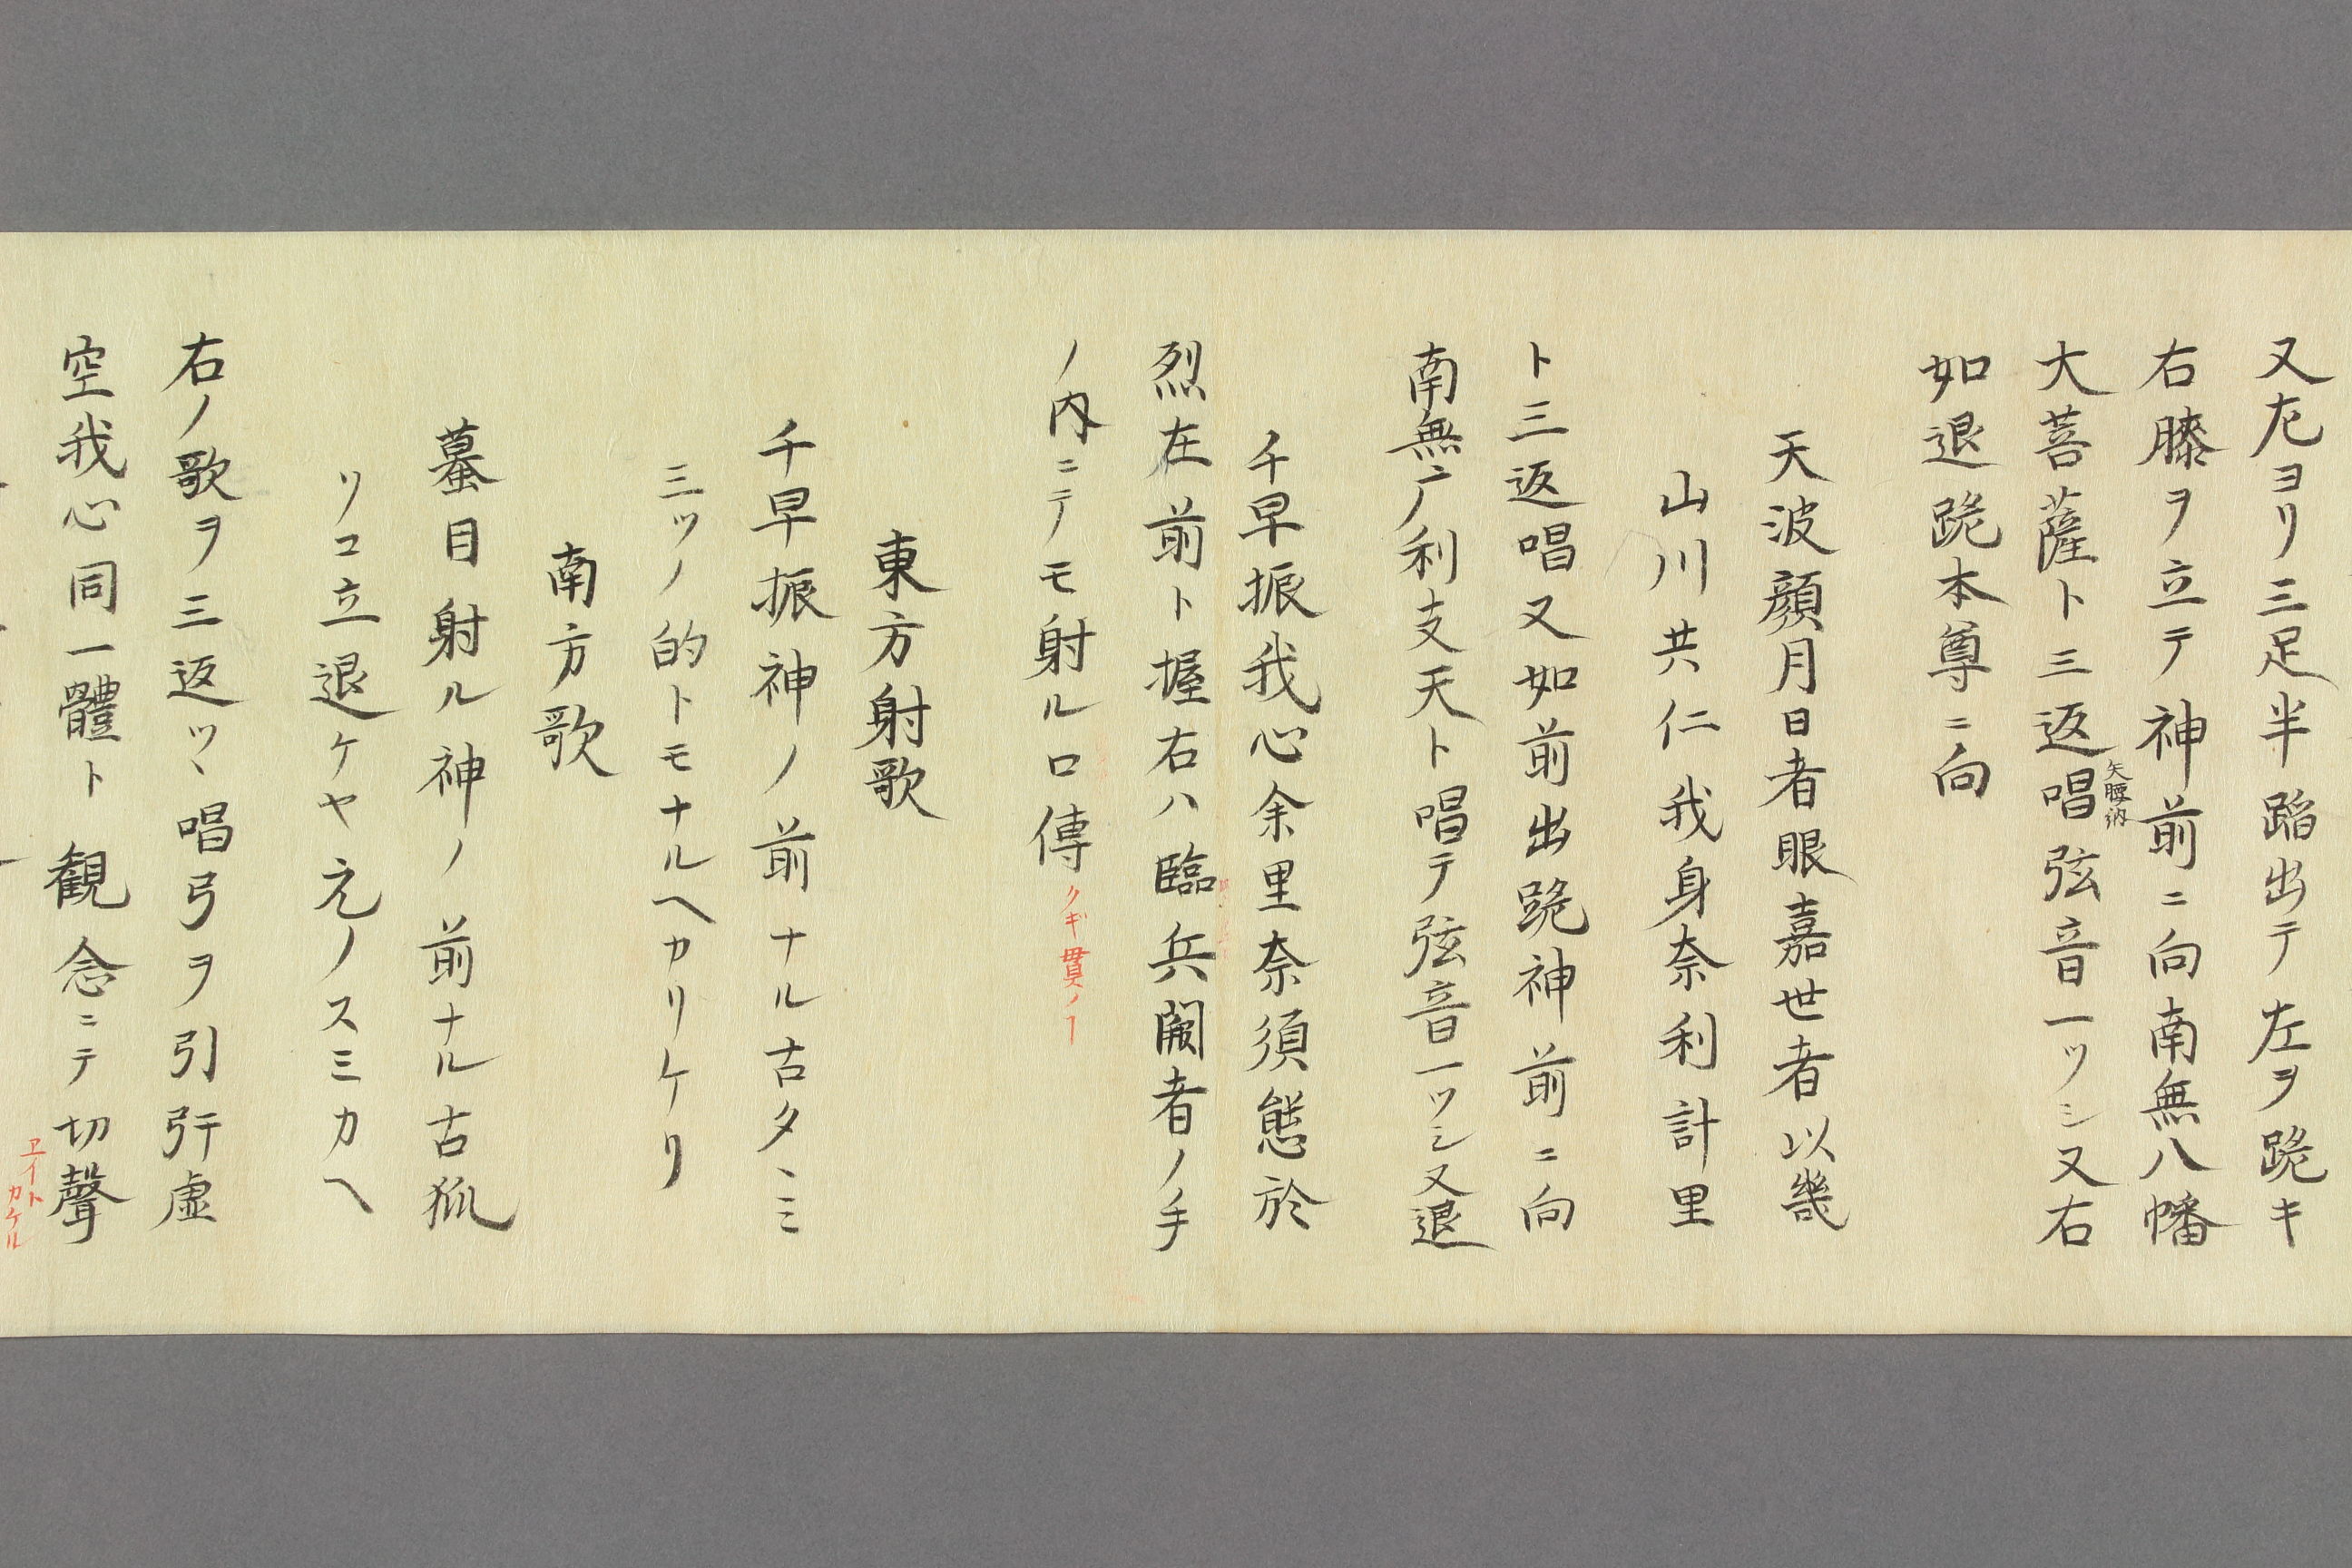 又左ヨリ三足半蹈出テ左ヲ跪キ
右膝ヲ立テ神前ニ向南無八幡
大菩薩ト三返唱弦音一ツシ又右
矢腰納
如退跪本尊ニ向
天波顔月日者眼嘉世者以幾
山川共仁我身奈利計里
ト三返唱又如前出跪神前ニ向
南無广利支天ト唱テ弦音一ツシ又退
千早振我心余里奈須態於
烈在前ト握右ハ臨兵闘者ノ手
ノ内ニテモ射ル口傳
クギ貫ノ
東方射歌
千早振神ノ前ナル古タヽミ
三ツノ的トモナルヘカリケリ
南方歌
蟇目射ル神ノ前ナル古狐
リコ立退ケヤ元ノスミカヘ
右ノ歌ヲ三返ツヽ唱弓ヲ引行虚
空我心同一體ト観念ニテ切聲
ヱイト
カケル